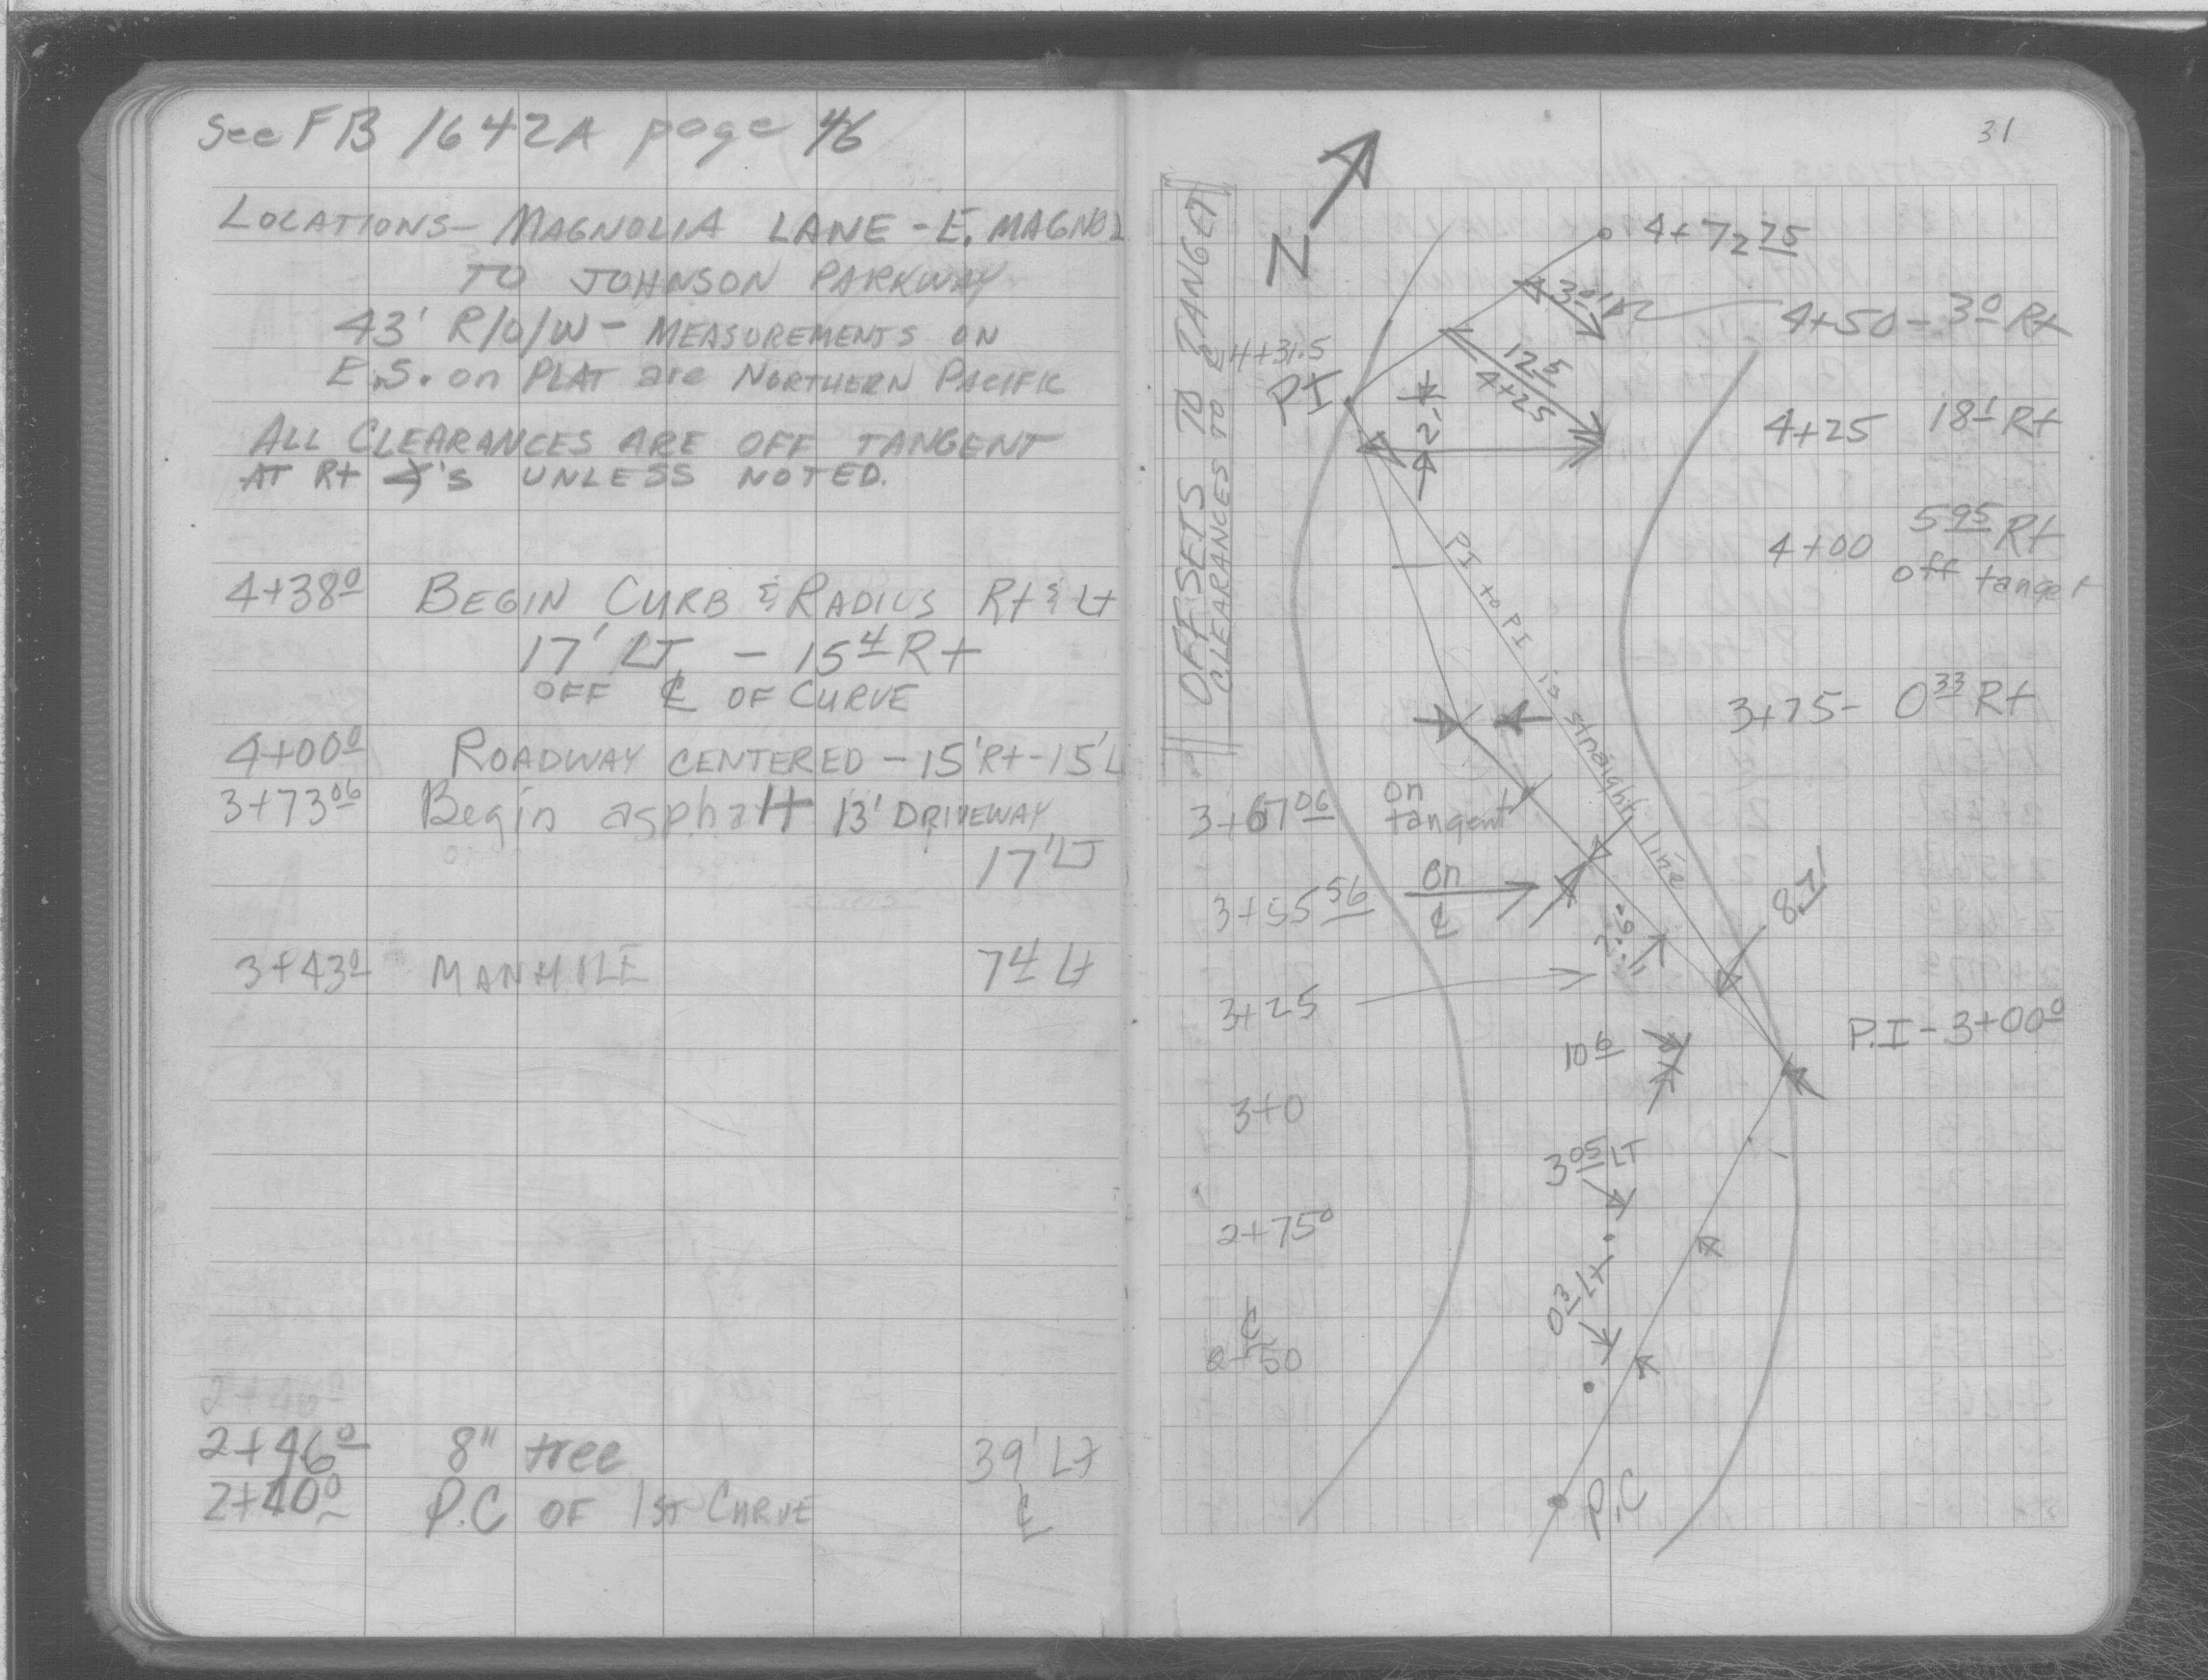 See FB 1642A page 46
LOCATIONS - MAGNOLIA LANE - E. MAGNOL
TO JOHNSON PARKWAY
43' R/O/W - MEASUREMENTS ON
E.S. on PLAT are NORTHERN PACIFIC
ALL CLEARANCES ARE OFF TANGENT
AT Rt ∡'s UNLESS NOTED.
4+38⁰ BEGIN CURB & RADIUS Rt & Lt
17' LT - 15⁴ Rt
OFF ℄ OF CURVE
4+00⁰ ROADWAY CENTERED - 15' Rt - 15' L
3+73⁰⁶ Begin asphalt 13' DRIVEWAY
17' LT
3+43⁰ MANHOLE 7⁴ Lt
2+40⁰
2+46⁰ 8" tree 39' Lt
2+40⁰ P.C OF 1ST CURVE ℄
31
OFFSETS TO TANGET
CLEARANCES TO ℄
N
4+72⁷⁵
3⁰'
4+50 - 3⁰ Rt
4+31.5
PI
12⁵
4+25
4+25 18¹ Rt
4+00 5⁹⁵ Rt
off tanget
PI to PI is straight line
3+75 - 0³³ Rt
3+67⁰⁶ on
tangent
3+55⁵⁶ on
℄
8⁷'
3+25
P.I - 3+00⁰
10⁶
3+0
3⁰⁵ LT
2+75⁰
0³ Lt
℄
2+50
P.C